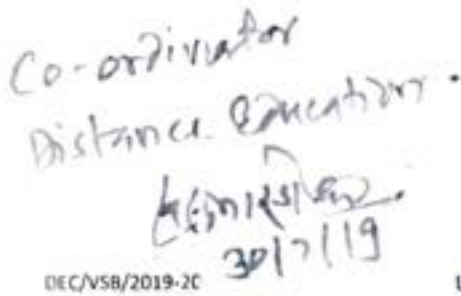 Co-ordinator
Distance Education.
30/7/19
DEC/VSB/2019-20